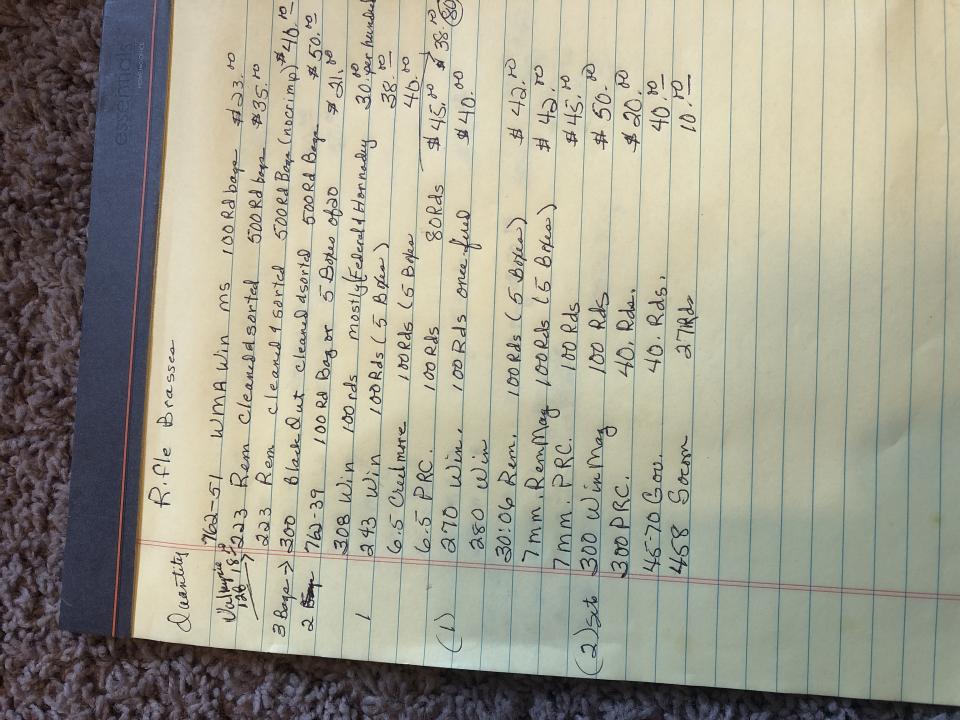 essentials
Quantity Rifle Brasses
762-51 WMA Win ms 100 Rd bags $23.00
Valkyrie 223 Rem Cleaned & sorted 500 Rd bags $35.00
223 Rem cleaned & sorted 500 Rd Bags (no crimp) $40.00
3 Bags -> 300 Black Out cleaned & sorted 500 Rd Bags $50.00
2 762-39 100 Rd Bag or 5 Boxes of 20 $21.00
308 Win 100 rds mostly (Federal & Hornady 30.00 per hundred
1 243 Win 100 Rds (5 Boxes) 38.00
6.5 Creedmore 100 Rds (5 Boxes 40.00
6.5 PRC. 100 Rds 80 Rds $45.00 $38.00 (80
(1) 270 Win. 100 Rds once fired $40.00
280 Win
30:06 Rem. 100 Rds (5 Boxes) $42.00
7mm. Rem Mag 100 Rds (5 Boxes) $42.00
7mm. PRC. 100 Rds $45.00
(2) set 300 Win Mag 100 Rds $50.00
300 PRC. 40. Rds. $20.00
45-70 Gov. 40. Rds. 40.00
458 Socom 27 Rds 10.00